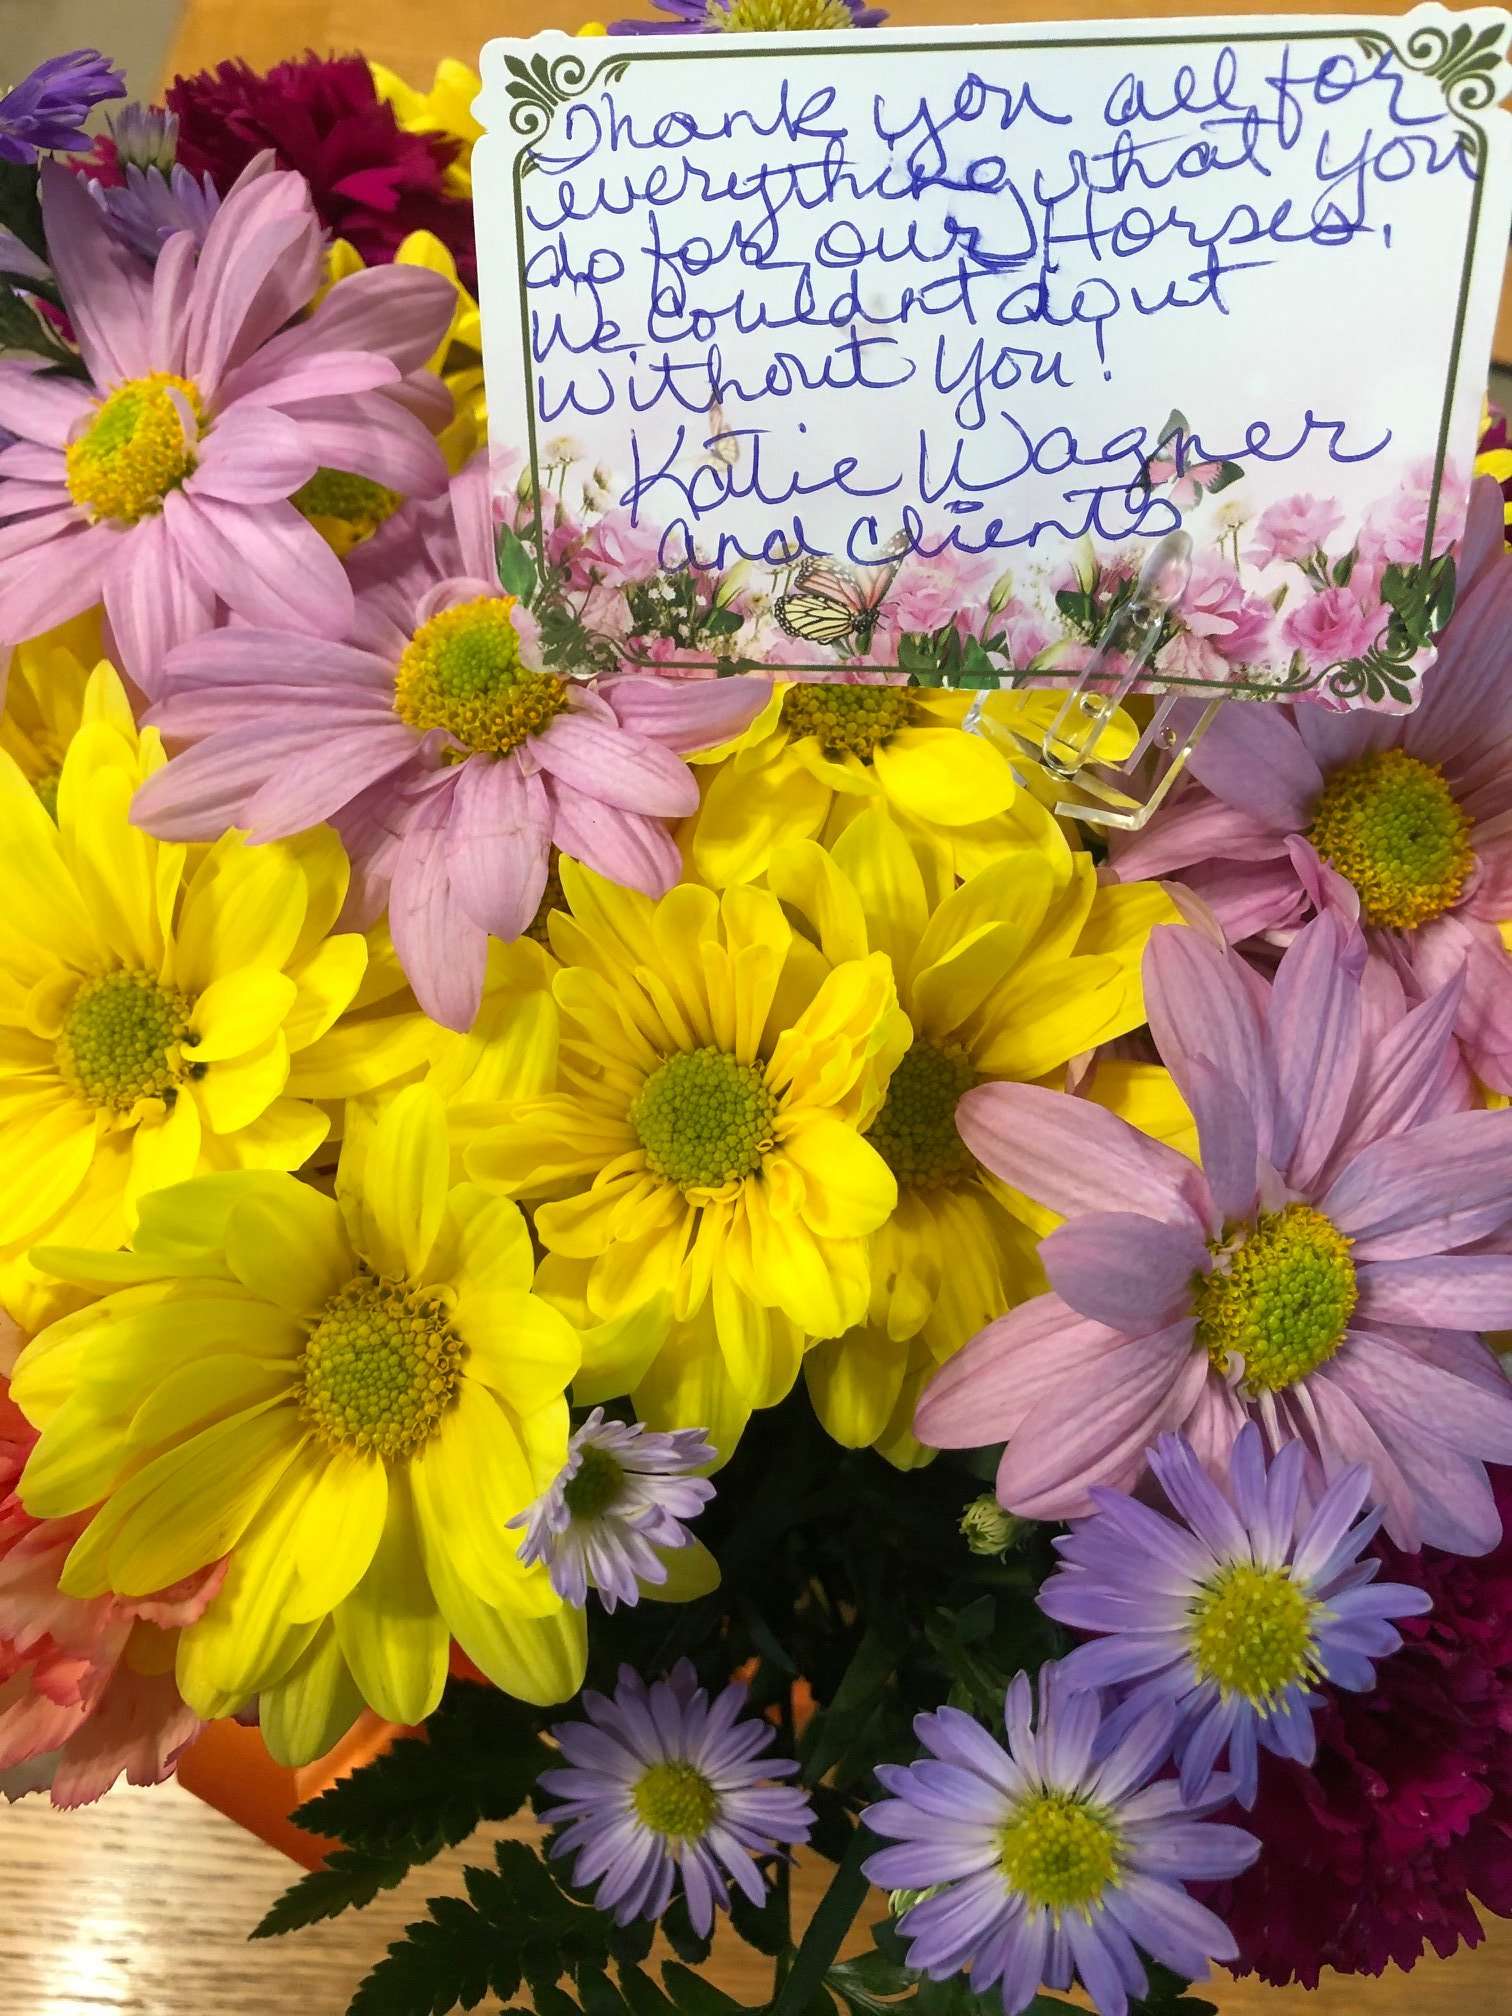 Thank you all for
everything that you
do for our Horses.
We couldnt do ut
without you!
Katie Wagner
and clients